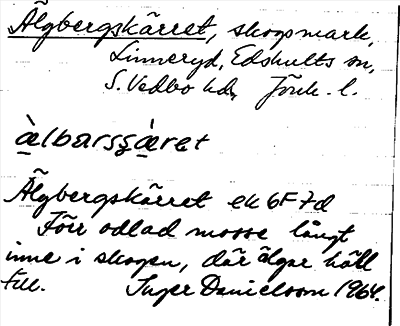 Älgbergskärret, skogsmark,
Linneryd, Edshults sn,
S. Vedbo hd, Jönk. l.
älbarsʂäret
Älgbergskärret ek 6F7d
Förr odlad mosse långt
inne i skogen, där älgar höll
till. Inger Danielsson 1964.